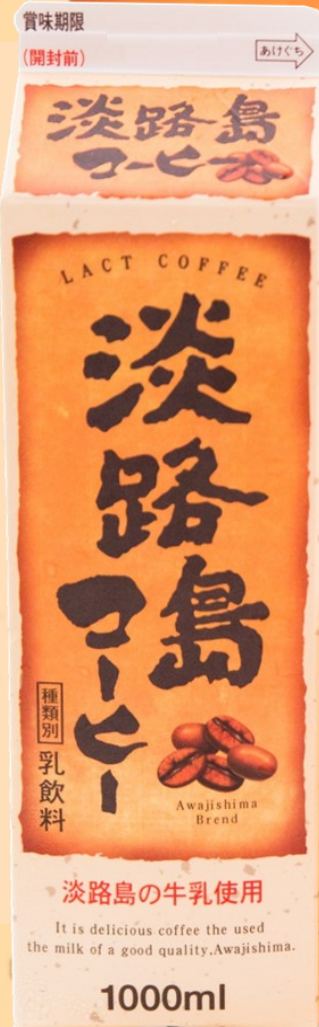 賞味期限
(開封前)
あけぐち
淡路島
コーヒー
LACT COFFEE
淡路島
コーヒー
種類別
乳飲料
Awajishima
Brend
淡路島の牛乳使用
It is delicious coffee the used
the milk of a good quality,Awajishima.
1000ml